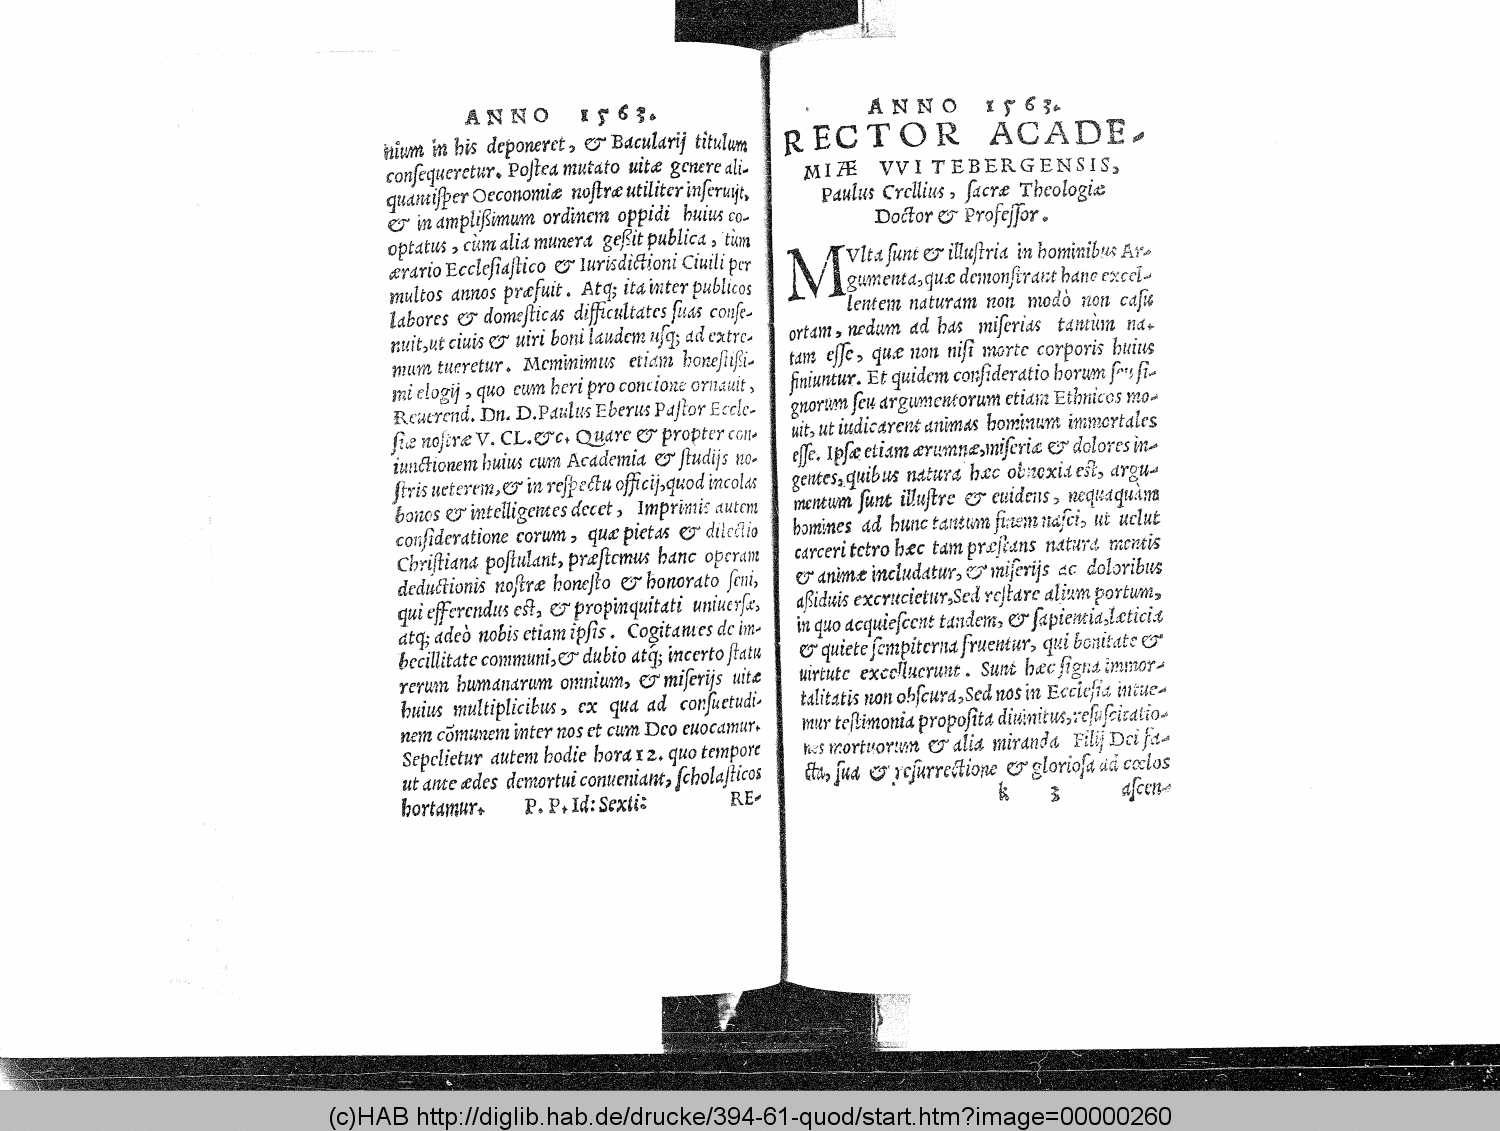 ANNO 1563.
nium in his deponeret, & Bacularij titulum
consequeretur. Postea mutato uitæ genere ali-
quantisper Oeconomiæ nostræ utiliter inseruijt,
& in amplißimum ordinem oppidi huius co-
optatus, cùm alia munera geßit publica, tùm
ærario Ecclesiastico & Iurisdictioni Ciuili per
multos annos præfuit. Atq; ita inter publicos
labores & domesticas difficultates suas conse-
nuit, ut ciuis & uiri boni laudem usq; ad extre-
mum tueretur. Meminimus etiam honestißi-
mi elogij, quo eum heri pro concione ornauit,
Reuerend. Dn. D. Paulus Eberus Pastor Eccle-
siæ nostræ V. CL. &c. Quare & propter con-
iunctionem huius cum Academia & studijs no-
stris ueterem, & in respectu officij, quod incolas
bonos & intelligentes decet, Imprimis autem
consideratione eorum, quæ pietas & dilectio
Christiana postulant, præstemus hanc operam
deductionis nostræ honesto & honorato seni,
qui efferendus est, & propinquitati uniuersæ,
atq; adeò nobis etiam ipsis. Cogitantes de im-
becillitate communi, & dubio atq́; incerto statu
rerum humanarum omnium, & miserijs uitæ
huius multiplicibus, ex qua ad consuetudi-
nem cōmunem inter nos et cum Deo euocamur.
Sepelietur autem hodie hora 12. quo tempore
ut ante ædes demortui conueniant, scholasticos
hortamur. P. P. Id: Sextil:
RE-
ANNO 1563.
RECTOR ACADE-
MIÆ VVITEBERGENSIS,
Paulus Crellius, sacræ Theologiæ
Doctor & Professor.
MVlta sunt & illustria in hominibus Ar-
gumenta, quæ demonstrant hanc excel-
lentem naturam non modò non casu
ortam, nedum ad has miserias tantùm na-
tam esse, quæ non nisi morte corporis huius
finiuntur. Et quidem consideratio horum seu si-
gnorum seu argumentorum etiam Ethnicos mo-
uit, ut iudicarent animas hominum immortales
esse. Ipsæ etiam ærumnæ, miseriæ & dolores in-
gentes, quibus natura hæc obnoxia est, argu-
mentum sunt illustre & euidens, nequaquàm
homines ad hunc tantum finem nasci, ut uelut
carceri tetro hæc tam præstans natura mentis
& animæ includatur, & miserijs ac doloribus
aßiduis excrucietur, Sed restare alium portum,
in quo acquiescent tandem, & sapientia, læticia
& quiete sempiterna fruentur, qui bonitate &
uirtute excelluerunt. Sunt hæc signa immor-
talitatis non obscura, Sed nos in Ecclesia intue-
mur testimonia proposita diuinitus, resuscitatio-
nes mortuorum & alia miranda Filij Dei fa-
cta, sua & resurrectione & gloriosa ad cœlos
k 3 ascen-
(c)HAB http://diglib.hab.de/drucke/394-61-quod/start.htm?image=00000260